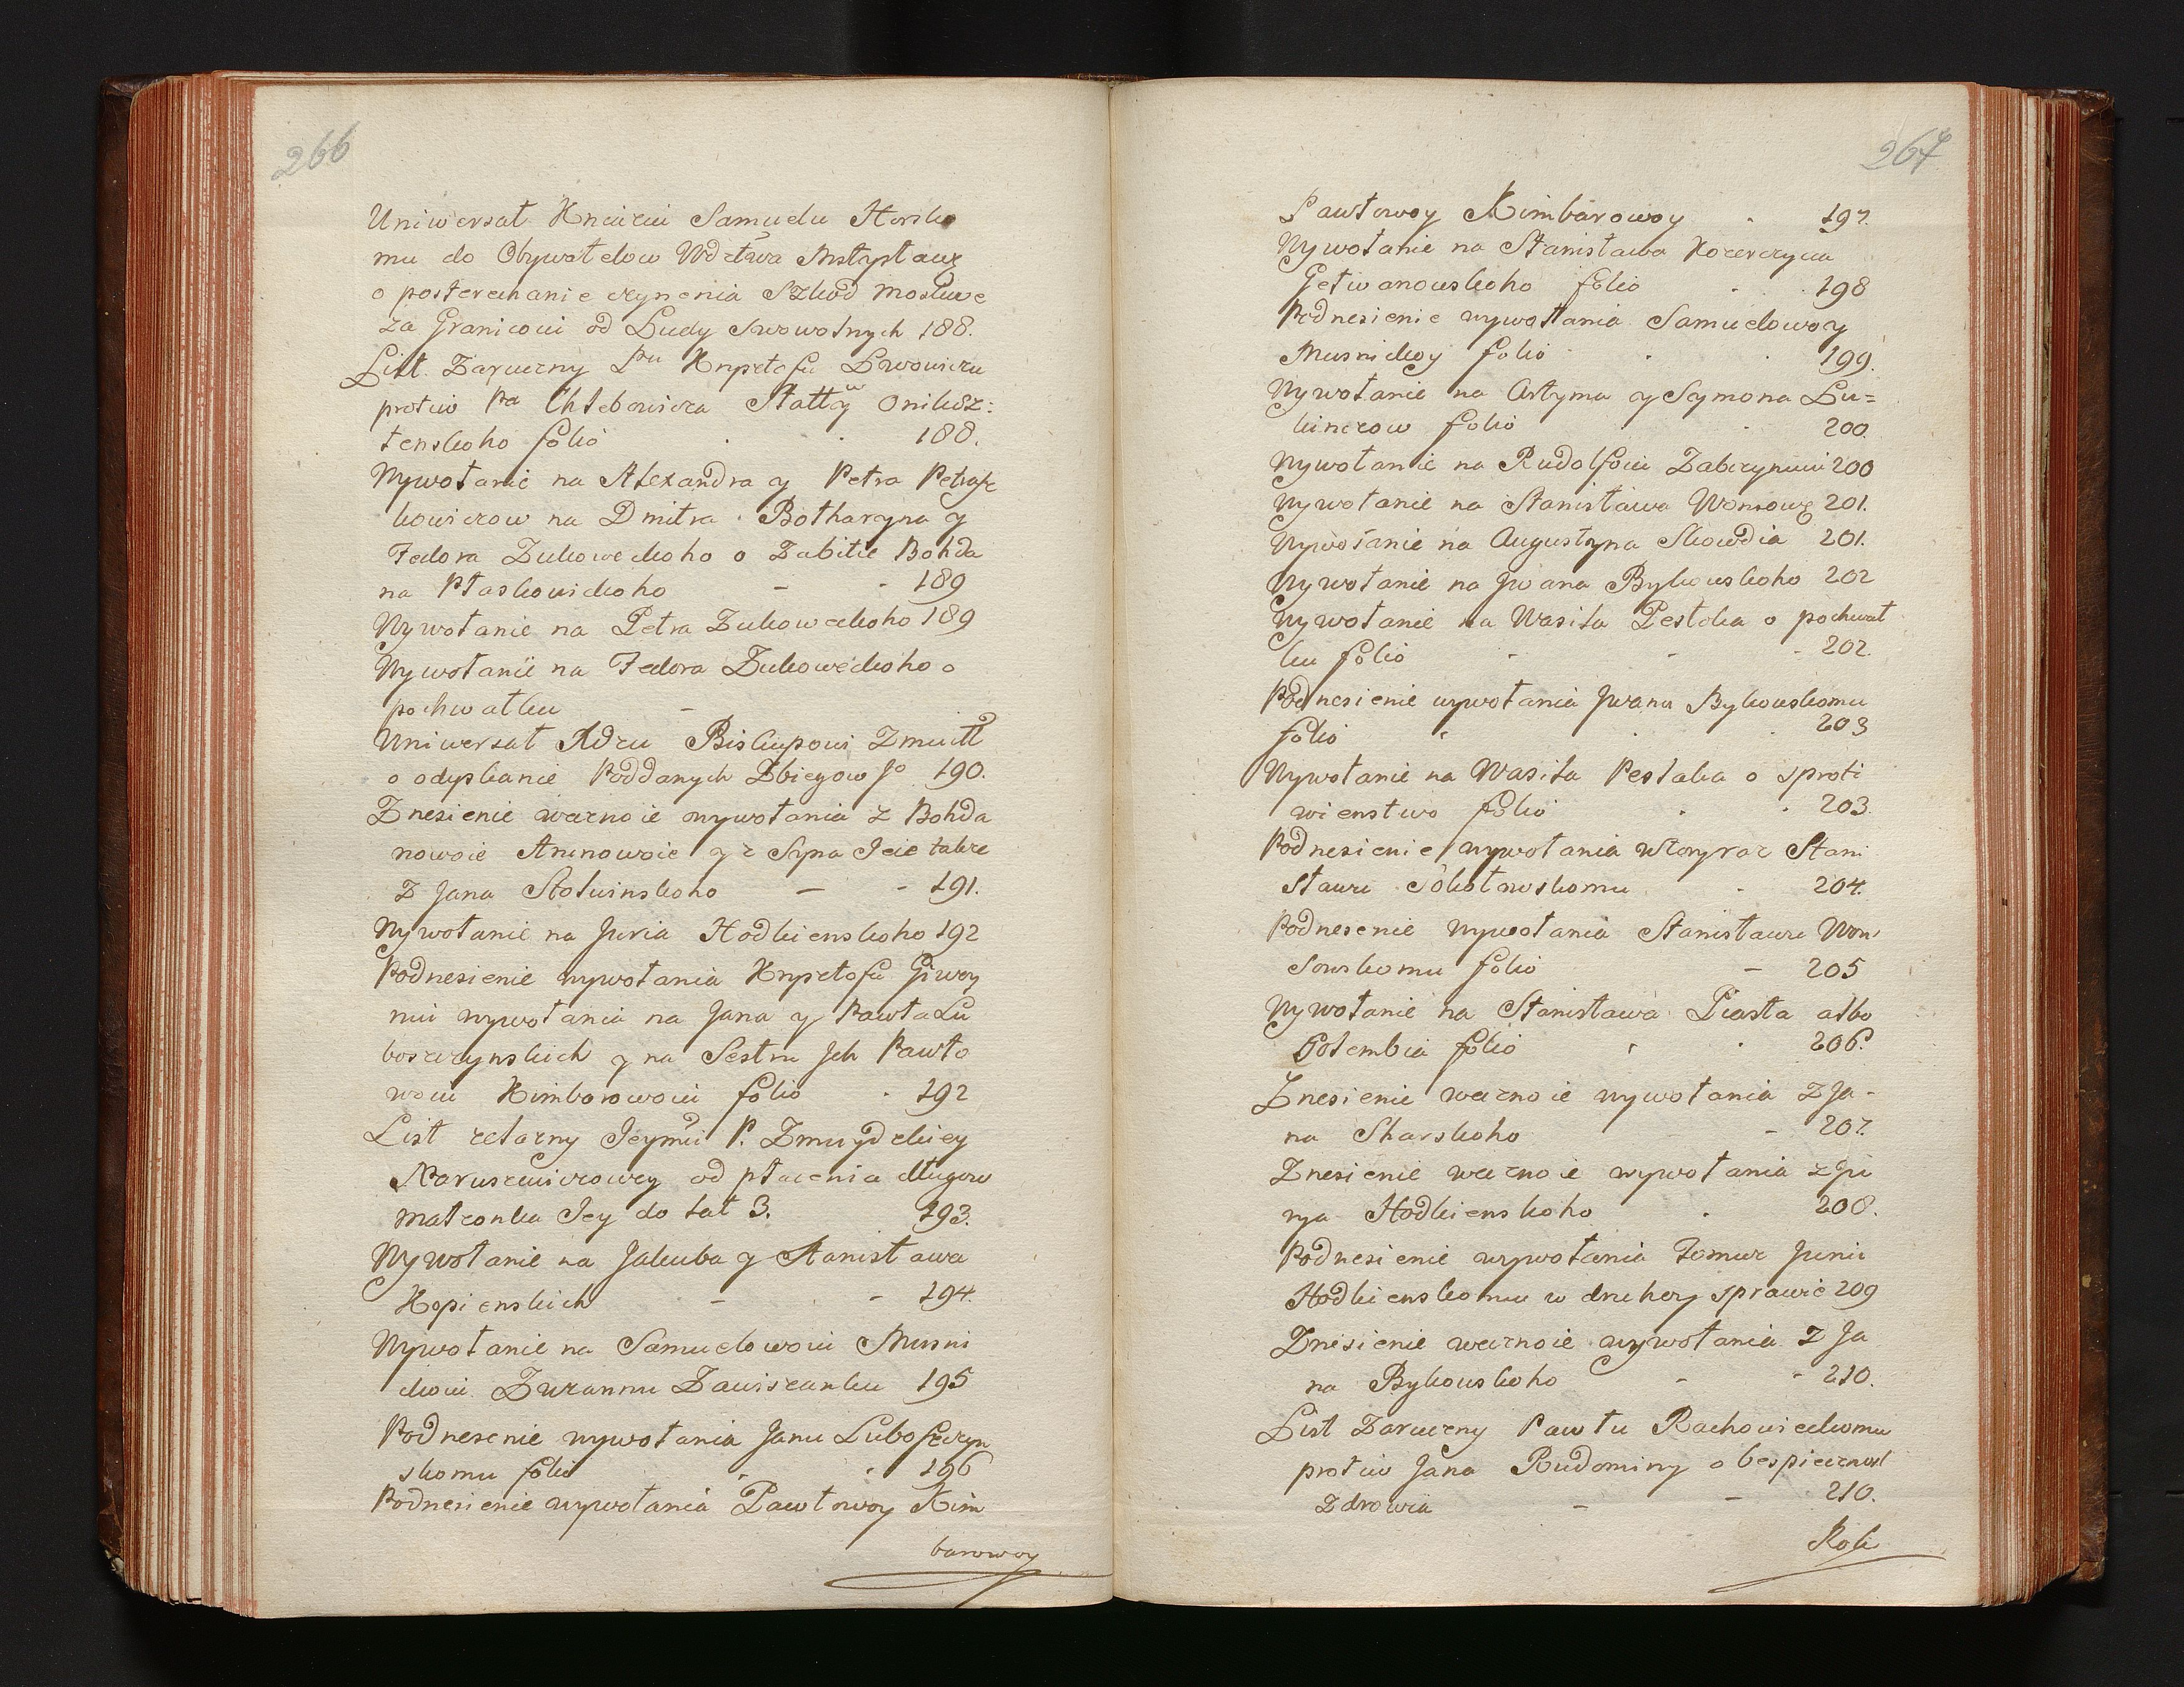 266
Uniwersał Kniaziu Samuelu Horsko
mu do Obywatelow Wdztwa Mstysławz
o posterehanie czynenia Szkod Moskwe
za Granicoiu od Ludy Swowolnych 188.
List Zaruczny Pnu Krysztofu Lwowiczu
protiw Pa Chlebowicza Statty Onikſz:
tenskoho folio 188.
Wywołanie na Alexandra y Petra Petraſz
kowiczow na Dmitra Bołharyna y
Fedora Zukoweckoho o Zabitie Bohda
na Płaskowickoho - - 189
Wywołanie na Petra Zukoweckoho 189
Wywołanie na Fedora Zukoweckoho o
pochwałku -
Uniwersał Xdzu Biskupowi Zmuitt
o odyskanie Poddanych Zbiegow fo 190.
Znesienie wecznoie wywołania z Bohda
nowoie y z Syna Jeie takze
z Jana Stotwinskoho - - 191.
Wywołanie na Juria Hodkienskoho 192
Podnesienie wywołania Krysztofu Giwoy
niu wywołania na Jana y Pawła Lu
boszczynskich y na Sestru Jch Pawło
woiu Kimborowoiu folio 192
List zelazny Jeymci P. Zmuydzkiey
Naruszewiczowey od płacenia długow
Małzonka Jey do lat 3. 193.
Wywołanie na Jakuba y Stanisława
Kopienskich - - 194.
Wywołanie na Samuelowoiu Musni
ckoiu Zuzannu Zawiszanku 195
Podnesenie wywołania Janu Luboſzczyn
skomu folio 196
Podnesienie wywołania Pawłowoy Kim
barowoy
267
Pawłowoy Kimbarowoy 197.
Wywołanie na Stanisława Kozerczyca
Getwanowskoho folio 198
Podnesienie wywołania Samuelowoy
Musnickoy folio 199.
Wywołanie na Artyma y Symona Lu=
kinczow folio 200.
Wywołanie na Rudolfoiu Zabczynuiu 200
Wywołanie na Stanisława Wonsowz 201.
Wywołanie na Augustyna Skowdia 201.
Wywołanie na Jwana Bykowskoho 202
Wywołanie na Wasila Pestoka o pochwał
ku folio - - - 202.
Podnesienie wywołania Jwanu Bykowskomu
folio 203
Wywołanie na Wasila Pestaka o sproti
wienstwo folio 203.
Podnesienie wywołania wtoryraz Stani
sławu Sokołowskomu 204.
Podnesenie wywołania Stanisławu Won
sowskomu folio - 205
Wywołanie na Stanisława Piasta albo
Gołembia folio 206.
Znesienie wecznoie wywołania z Ja-
na Skarskoho - 207.
Znesienie wecznoie wywołania z Ju
rya Hodkienskoho 208.
Podnesienie wywołania Tomuz Juriu
Hodkienskomu w druhoy sprawie 209
Znesienie wecznoie wywołania z Ja
na Bykowskoho - - 210.
List Zaruczny Pawłu Rachowieckomu
protiw Jana Rudominy o bespiecznost
Zdrowia - - 210.
Rok